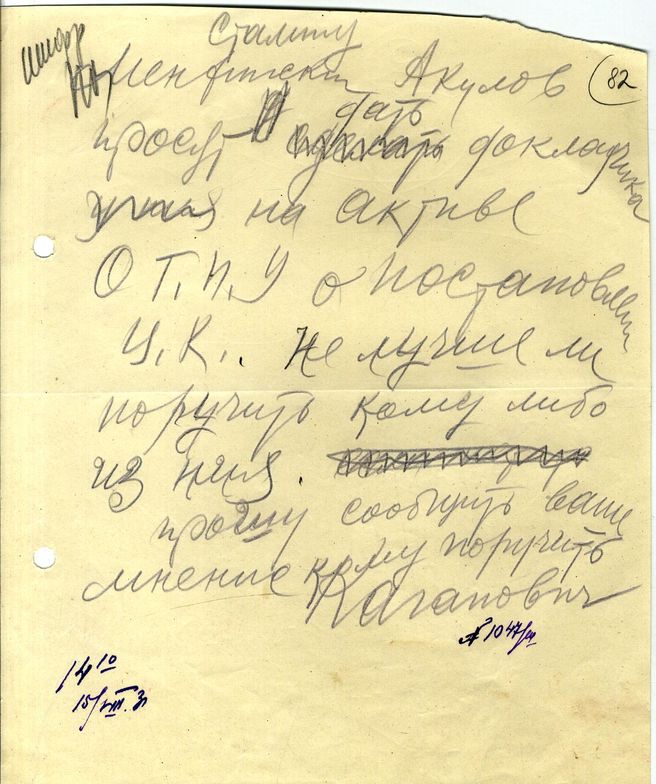 шифр
Сталину
82
Менжинский Акулов
просят дать докладчика
на активе
О Г.П.У о постановлении
Ц.К.. Не лучше ли
поручить кому либо
из них.
прошу сообщить ваше
мнение кому поручить
Каганович
14 10
15/VIII.31